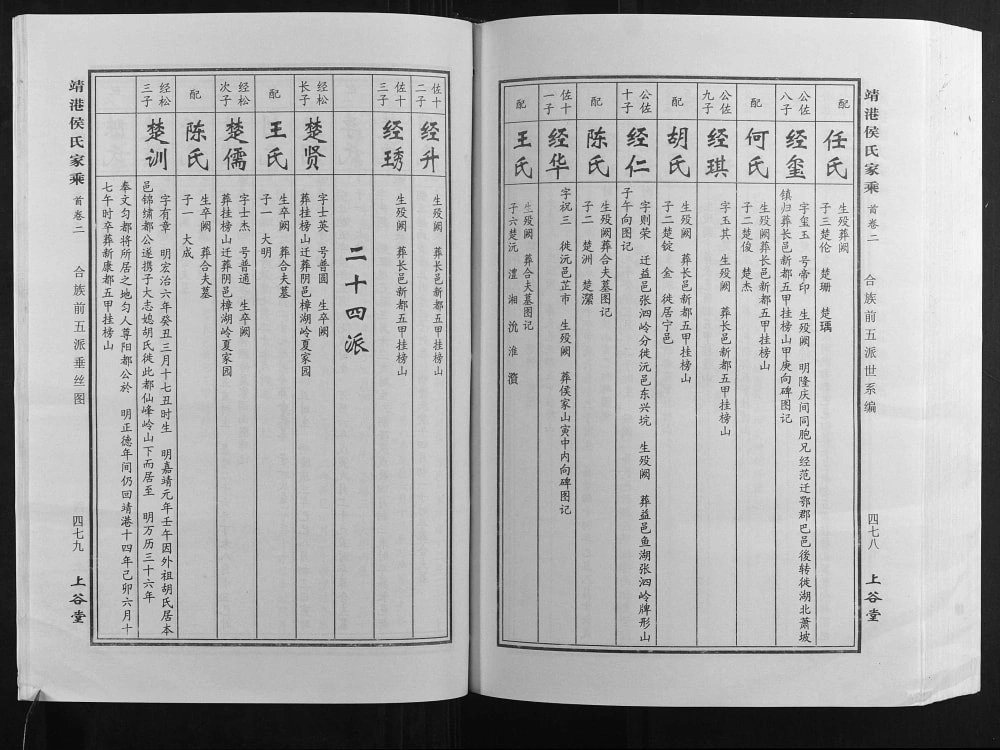 靖港侯氏家乘 首卷二 合族前五派世系编 四七八 上谷堂
配
任氏
生殁葬阙
子三楚伦 楚珊 楚瑀
公佐八子
经玺
字玺玉 号帝印 生殁阙 明隆庆间同胞兄经范迁鄂郡巴邑後转徙湖北萧坡
镇归葬长邑新都五甲挂榜山甲庚向碑图记
配
何氏
生殁阙葬长邑新都五甲挂榜山
子二楚俊 楚杰
公佐九子
经琪
字玉其 生殁阙 葬长邑新都五甲挂榜山
配
胡氏
生殁阙 葬长邑新都五甲挂榜山
子二楚锭 金 徙居宁邑
公佐十子
经仁
字则荣 迁益邑张泗岭分徙沅邑东兴坑 生殁阙 葬益邑鱼湖张泗岭牌形山
子午向图记
配
陈氏
生殁阙葬合夫墓图记
子二 楚洲 楚瀠
佐十一子
经华
字祝三 徙沅邑芷市 生殁阙 葬侯家山寅中内向碑图记
配
王氏
生殁阙 葬合夫墓图记
子六楚沅 澧 湘 沇 淮
佐十二子
经升
生殁阙 葬长邑新都五甲挂榜山
佐十三子
经琇
生殁阙 葬长邑新都五甲挂榜山
二十四派
经松长子
楚贤
字士英 号普圆 生卒阙
葬挂榜山迁葬阴邑樟湖岭夏家园
配
王氏
生卒阙 葬合夫墓
子一 大明
经松次子
楚儒
字士杰 号普通 生卒阙
葬挂榜山迁葬阴邑樟湖岭夏家园
配
陈氏
生卒阙 葬合夫墓
子一 大成
经松三子
楚训
字有章 明宏治六年癸丑三月十七丑时生 明嘉靖元年壬午因外祖胡氏居本
邑锦绣都公遂携子大志媳胡氏徙此都仙峰岭山下而居至 明万历三十六年
奉文匀都将所居之地匀人尊阳都公於 明正德年间仍回靖港十四年己卯六月十
七午时卒葬新康都五甲挂榜山
靖港侯氏家乘 首卷二 合族前五派垂丝图 四七九 上谷堂